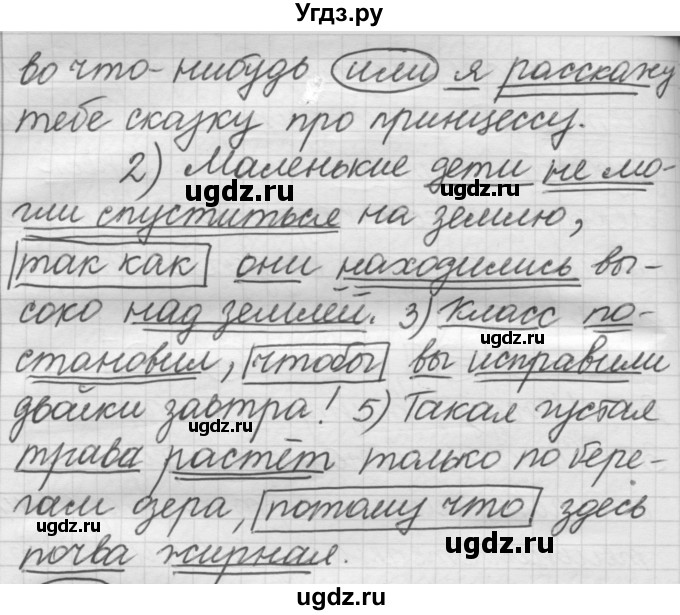 Угдз.ру
во что-нибудь или я расскажу
тебе сказку про принцессу.
2) Маленькие дети не мо-
ugdz.ru
ugdz.ru
гли спуститься на землю,
так как они находились вы-
соко над землей. 3) Класс по-
ugdz.ru
становил, чтобы вы исправили
двойки завтра! 5) Такая густая
ugdz.ru
трава растёт только по бере-
гам озера, потому что здесь
ugdz.ru
ugdz.ru
почва жирная.
ugdz.ru